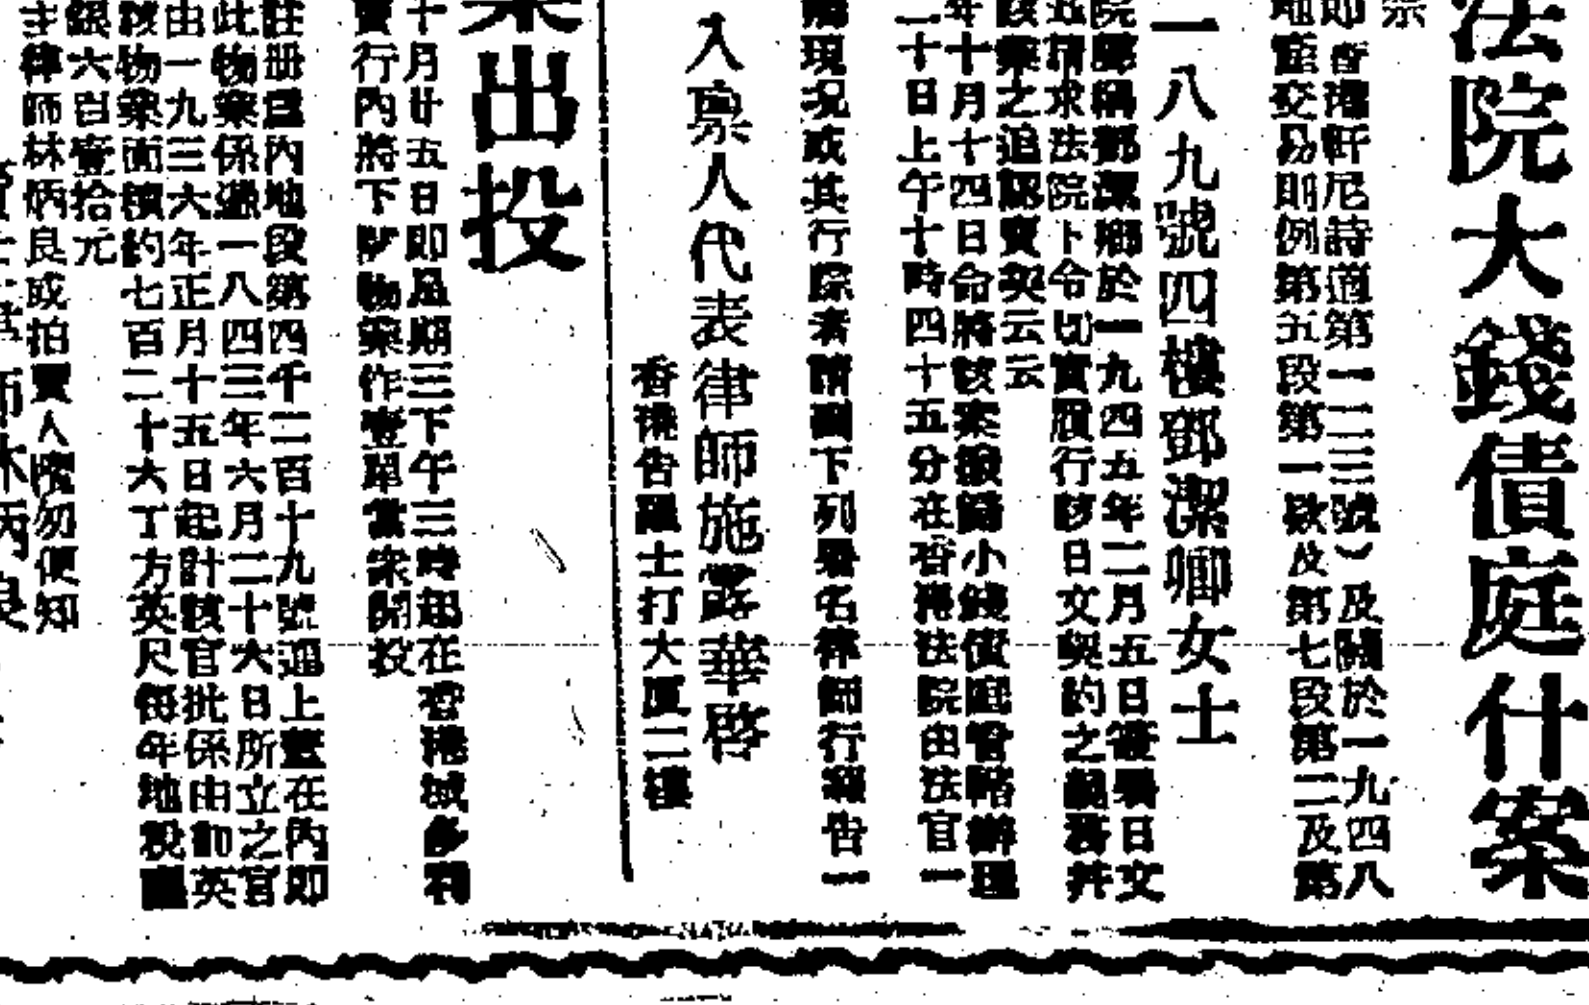 法院大錢債庭什案
即香港軒尼詩道第一二三號）及關於一九四八
地產交易則例第五段第一欵及第七段第二及第
一八九號四樓鄧潔卿女士
院聲稱鄧潔卿於一九四五年二月五日簽署日文
請求法院下令切實履行該日文契約之義務幷
該業之追認賣契云云
年十月十四日命將該案撥歸小錢債庭管轄辦理
二十日上午十時四十五分在香港法院由法官一
現況或其行踪者請向下列署名律師行報告一
入禀人代表律師施露華啓
香港告羅士打大厦二樓
業出投
十月廿五日即星期三下午三時起在香港域多利
賣行內將下開物業作壹單當衆開投
註册爲內地段第四千二百十九號連上蓋在內即
此物業係遞一八四三年六月二十六日所立之官
由一九三六年正月十五日起計該官批係由即英
該物業面積約七百二十六丁方英尺每年地稅
銀六百壹拾元
主律師林炳良或拍賣人隨勿便知
師林炳良